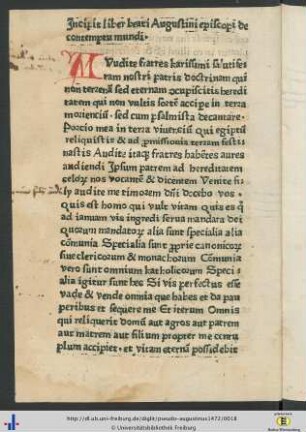 Incipit liber beati Augustini episcopi de
contemptu mundi.
Audite fratres karissimi
ram nostri patris doctrinam qui
non terrenā sed eternam heredi
tatem qui non vultis sortē accipe in terra
morienciū. sed cum psalmista decantare.
Porcio mea in terra viuenciū Qui egiptū
reliquistis & ad terram festi
nastis Audite itaqꝫ fratres habētes aures
audiendi Ipsum patrem ad hereditatem
vocantē & dicentem Venite fi
lij audite me timorem dnī docebo vos.
Quis est homo qui vult vitam quis est
ad ianuam vis ingredi serua mandata dei
quorum alia sunt specialia alia
cōmunia Specialia sunt canonicorꝫ
siue clericorum & monachorum Cōmunia
vero sunt omnium katholicorum Speci
alia igitur sunt hec Si vis perfectus esse
vade & vende omnia que habes et da pau
peribus et sequere me Et iterum Omnis
qui reliquerit domū aut agros aut patrem
aut matrem aut filium propter me centu
plum accipiet. et vitam eternā possidebit
http://dl.ub.uni-freiburg.de/diglit/pseudo-augustinus1472/0018
© Universitätsbibliothek Freiburg